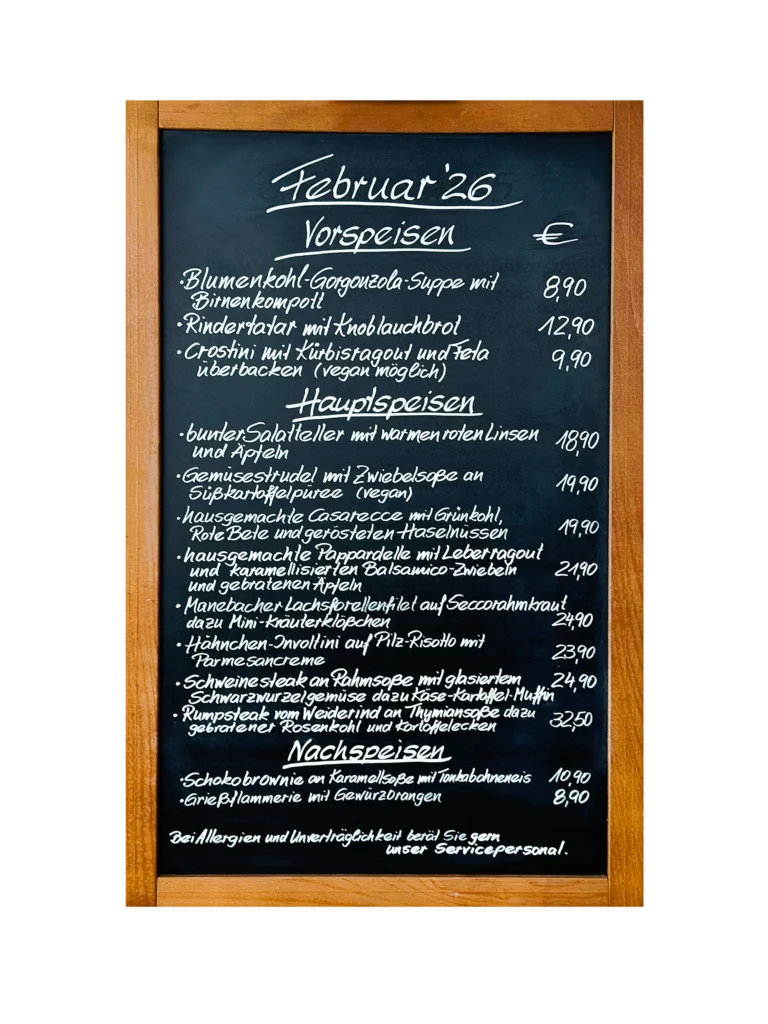 Februar '26
Vorspeisen €
·Blumenkohl-Gorgonzola-Suppe mit 8,90
Birnenkompott
·Rindertatar mit Knoblauchbrot 12,90
·Crostini mit Kürbisragout und Feta 9,90
überbacken (vegan möglich)
Hauptspeisen
·bunter Salatteller mit warmen roten Linsen 18,90
und Äpfeln
·Gemüsestrudel mit Zwiebelsoße an 19,90
Süßkartoffelpüree (vegan)
·hausgemachte Casarecce mit Grünkohl, 19,90
Rote Bete und gerösteten Haselnüssen
·hausgemachte Pappardelle mit Leberragout
und karamellisierten Balsamico-Zwiebeln 21,90
und gebratenen Äpfeln
·Manebacher Lachsforellenfilet auf Seccorahmkraut
dazu Mini-Kräuterklößchen 24,90
·Hähnchen-Involtini auf Pilz-Risotto mit 23,90
Parmesancreme
·Schweinesteak an Rahmsoße mit glasiertem 24,90
Schwarzwurzelgemüse dazu Käse-Kartoffel-Muffin
·Rumpsteak vom Weiderind an Thymiansoße dazu 32,50
gebratener Rosenkohl und Kartoffelecken
Nachspeisen
·Schokobrownie an Karamellsoße mit Tonkabohneneis 10,90
·Grießflammerie mit Gewürzorangen 8,90
Bei Allergien und Unverträglichkeit berät Sie gern
unser Servicepersonal.